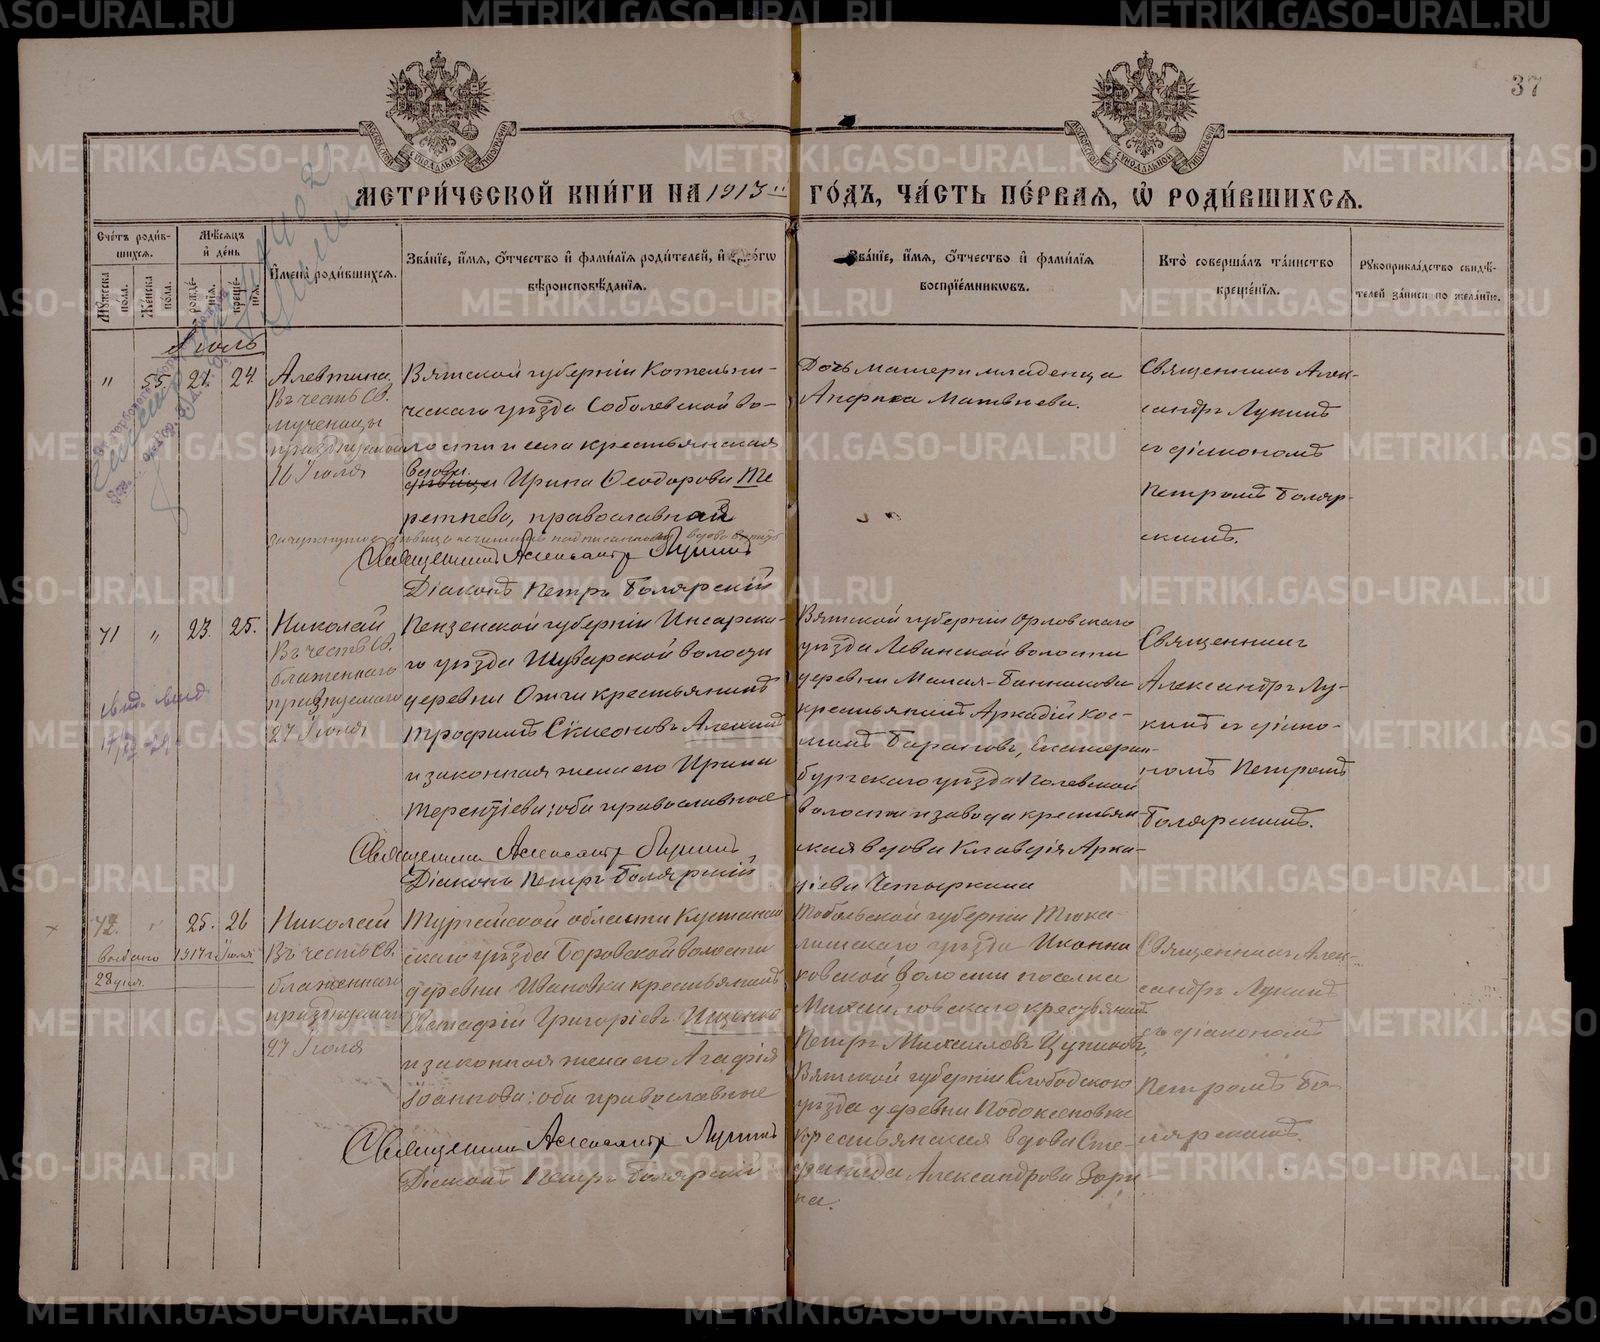 37
МЕТРИ́ЧЕСКОЙ КНИ́ГИ НА 1913 ГО́ДЪ, ЧА́СТЬ ПЕ́РВАЯ, Ѡ҆ РОДИ́ВШИХСЯ.
Сче́тъ роди́в-
шихся.
Му́жеска пола.
Же́нска пола.
Мѣ́сяцъ
и҆ де́нь
рожде́нїя.
креще́нїя.
И҆мена̀ роди́вшихся.
Зва́нїе, и҆́мя, ѻ҆́тчество и҆ фами́лїя роди́телей, и҆
вѣроисповѣ́данїя.
Зва́нїе, и҆́мя, ѻ҆́тчество и҆ фами́лїя
воспрїе́мникѡвъ.
Кто̀ соверша́лъ та́инство
креще́нїя.
Рꙋкоприкла́дство свидѣ́-
телей за́писи по жела́нїю.
Іюль
" 55. 21. 24.
Алевтина
Въ честь Св.
мученицы
празднуемой
16 Іюля
Вятской губерніи Котельни-
ческаго уѣзда Соболевской во-
лости и села крестьянская
вдова
дѣвица Ирина Ѳеодорова Пе
ретнева, православная
Священникъ Александръ Лукинъ
Діаконъ Петръ Боярскій
Дочь матери младенца
Анфиса Матвѣева.
Священникъ Алек-
сандръ Лукинъ
съ діакономъ
Петромъ Бояр-
скимъ.
71 " 23. 25.
Николай
Въ честь Св.
блаженнаго
празднуемаго
27 Іюля
Пензенской губерніи Инсарска-
го уѣзда Шуварской волости
деревни крестьянинъ
Трофимъ Сѵмеоновъ Алехинъ
и законная жена его Ирина
Терентіева; оба православные
Священникъ Александръ Лукинъ
Діаконъ Петръ Боярскій
Вятской губерніи Орловскаго
уѣзда Левинской волости
деревни Малая-Банникова
крестьянинъ Аркадій Кос-
минъ Барановъ, Екатерин-
бургскаго уѣзда Полевской
волости и завода крестьян-
ская вдова Клавдія Арка-
діева Четыркина
Священникъ
Александръ Лу-
кинъ съ діако-
номъ Петромъ
Боярскимъ.
72. " 25. 26
1917 г Іюля
28 дня.
Николай
Въ честь Св.
блаженнаго
празднуемаго
27 Іюля
Тургайской области Кустанай
скаго уѣзда Боровской волости
деревни Ивановки крестьянинъ
Григоріевъ Ищенко
и законная жена его Агафія
Іоаннова: оба православные
Священникъ Александръ Лукинъ
Діаконъ Петръ Боярскій
Тобольской губерніи Тюка-
линскаго уѣзда Иконни
ковской волости поселка
Михайловскаго крестьянинъ
Петръ Михаиловъ Цупиковъ,
Вятской губерніи Слободскаго
уѣзда деревни
крестьянская вдова Сте-
фанида Александрова Зори
на.
Священникъ Алек-
сандръ Лукинъ
съ діакономъ
Петромъ Бо-
ярскимъ.
METRIKI.GASO-URAL.RU